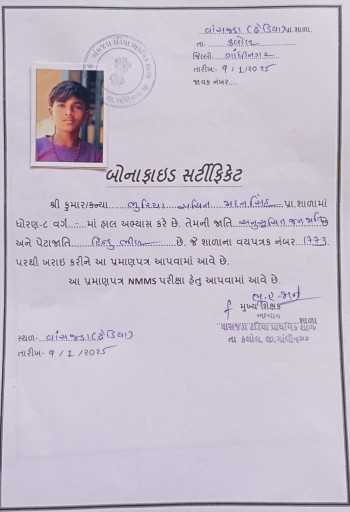 વાંસજડા (ઢેડિયા) પ્રા.શાળા.
તા. કલોલ
જિલ્લો. ગાંધીનગર
તારીખ:- ૧ / 1 / 2025
જાવક નંબર......
બોનાફાઇડ સર્ટીફિકેટ
શ્રી કુમાર/કન્યા ભુરિયા સચિન મદનસિંહ પ્રા.શાળામાં
ધોરણ-૮ વર્ગ - માં હાલ અભ્યાસ કરે છે. તેમની જાતિ અનુસુચિત જન જાતિ
અને પેટાજાતિ હિન્દુ ભીલ છે. જે શાળાના વયપત્રક નંબર 1773
પરથી ખરાઇ કરીને આ પ્રમાણપત્ર આપવામાં આવે છે.
આ પ્રમાણપત્ર NMMS પરીક્ષા હેતુ આપવામાં આવે છે.
મુખ્ય શિક્ષક
આચાર્ય
શાળા
તા કલોલ, જી.ગાંધીનગર
સ્થળ:- વાંસજડા (ઢેડિયા)
તારીખ:- ૧ / 1 / 2025